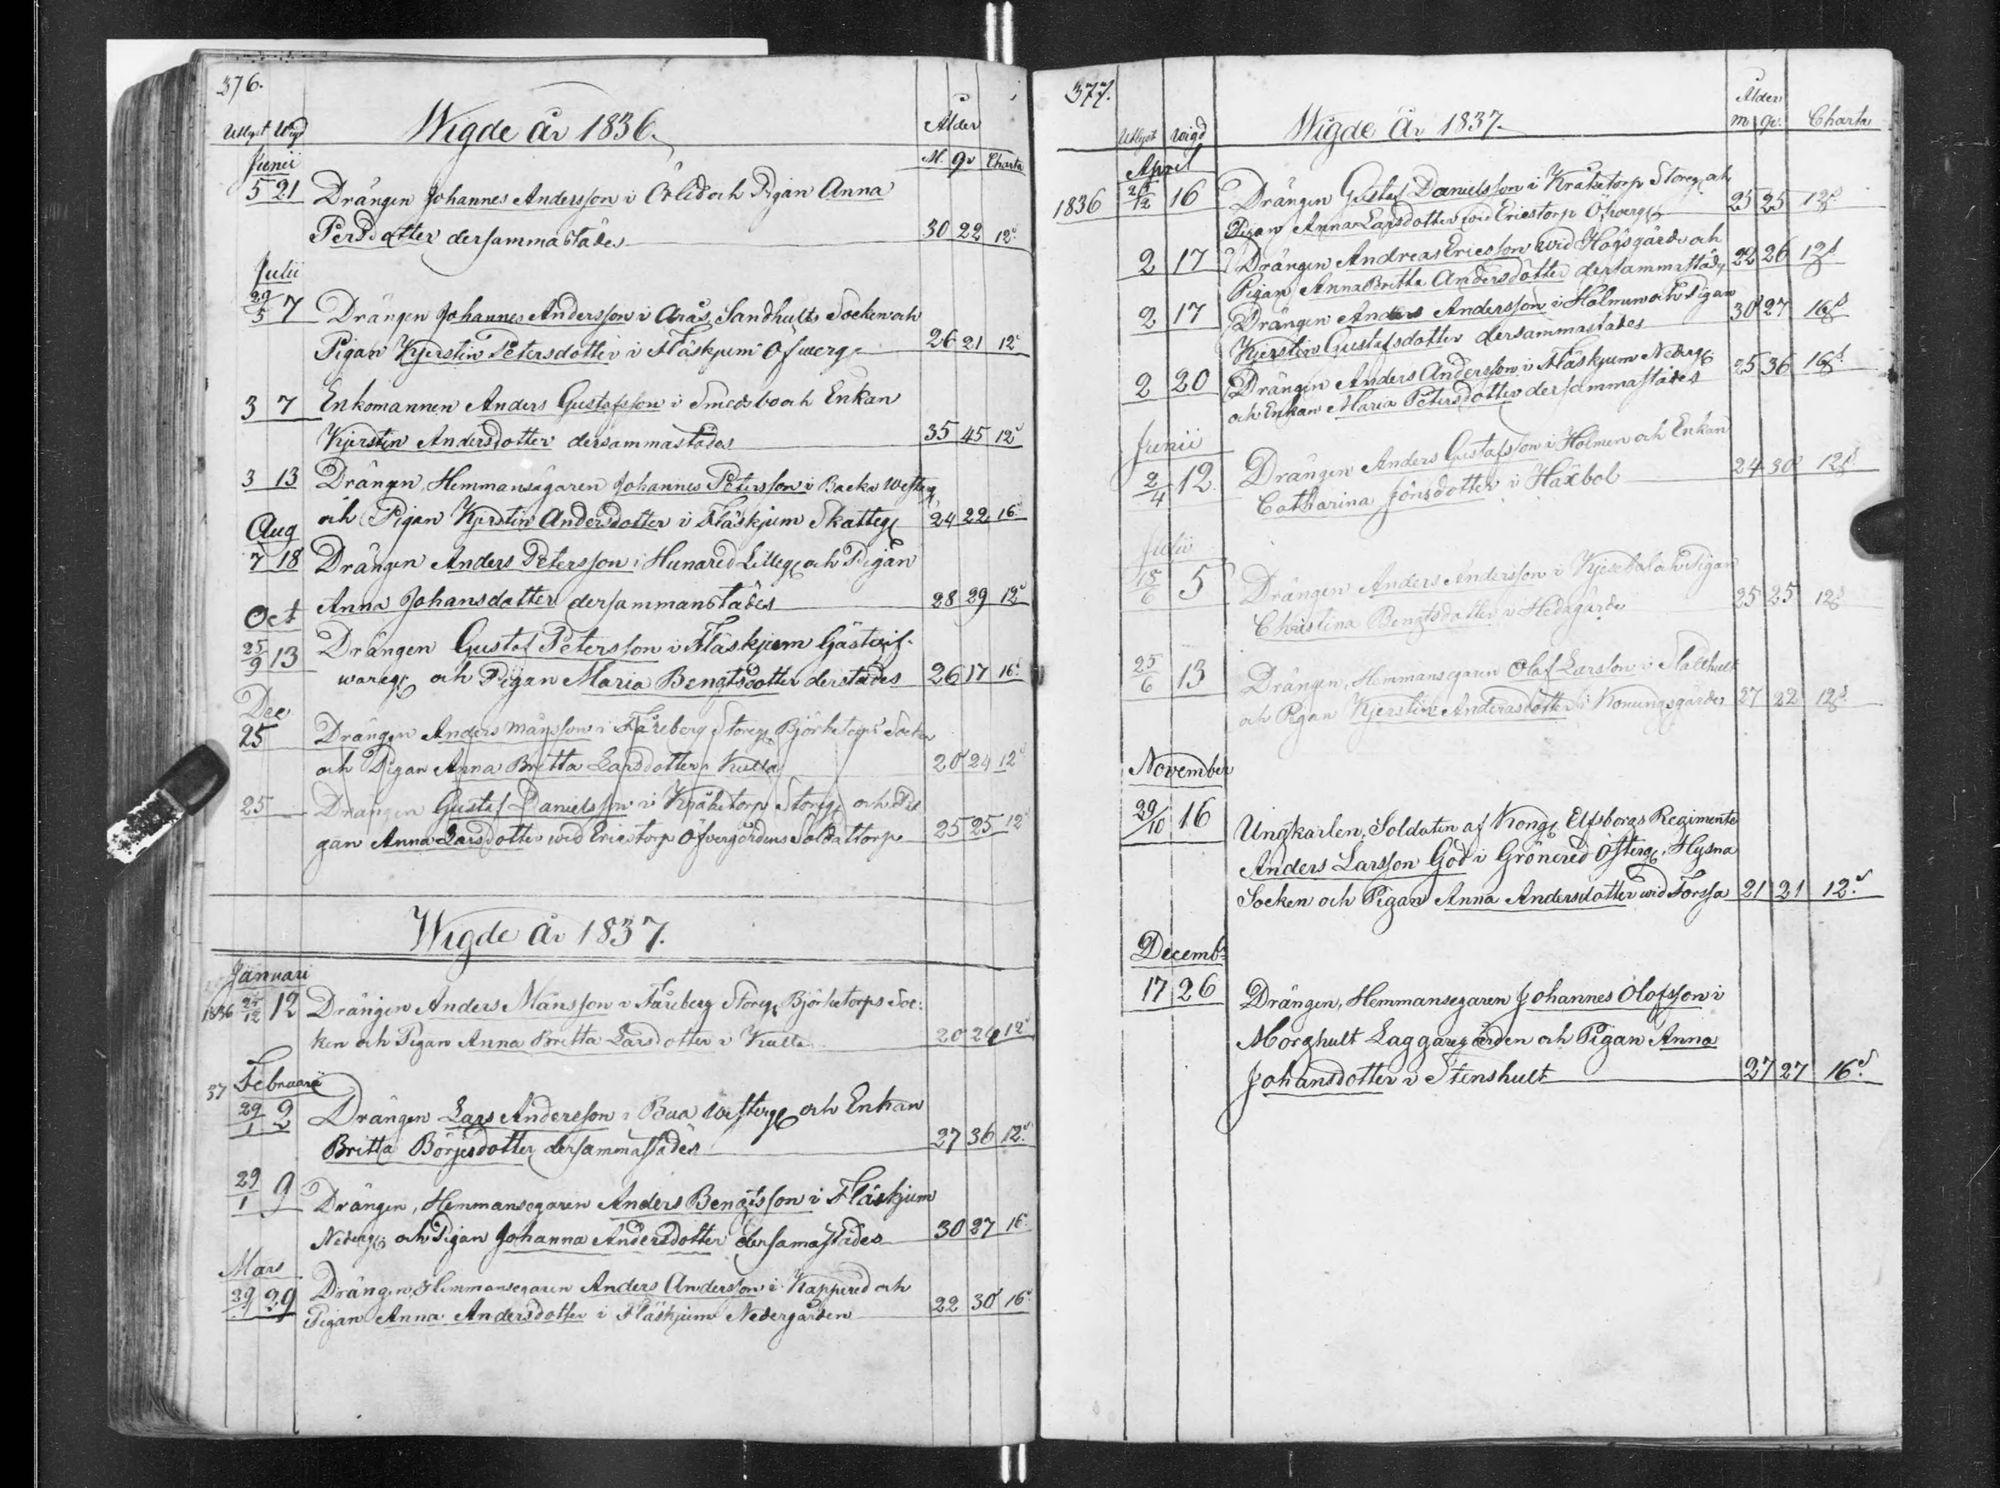 376.
Utlyst Wigd Wigde år 1836. Ålder
Junii M. Qv Charta
5 21 Drängen Johannes Andersson i Örlid och Pigan Anna
Persdotter dersammastädes 30 22 12s
Julii
29/5 7 Drängen Johannes Andersson i Arås, Sandhults Socken och
Pigan Kjerstin Petersdotter i Fläskjum Öfwerg. 26 21 12s
3 7 Enkomannen Anders Gustafsson i Smedsbo och Enkan
Kjerstin Andersdotter dersammastädes 35 45 12s
3 13 Drängen, Hemmansägaren Johannes Petersson i Backa Westerg
Aug och Pigan Kjerstin Andersdotter i Fläskjum Skatteg 24 22 16s
7 18 Drängen Anders Petersson i Hunared Lilleg och Pigan
Oct Anna Johansdotter dersammanstädes 28 29 12s
25/9 13 Drängen Gustaf Petersson i Fläskjum Gästgif-
wareg och Pigan Maria Bengtsdotter derstädes 26 17 16s
Dec
25 Drängen Anders Månsson i Fåreberg Storeg Björketorps Socken
och Pigan Anna Britta Larsdotter i Kulla 20 24 12s
25 Drängen Gustaf Danielsson i Kråketorp Storeg och Pi
gan Anna Larsdotter wid Ericstorp Öfvergårdens Soldattorp 25 25 12s
Wigde år 1837.
Januari
1836 25/12 12 Drängen Anders Månsson i Fåreberg Storeg Björketorps Soc-
ken och Pigan Anna Britta Larsdotter i Kulla 20 24 12s
37 Februarii
29/1 9 Drängen Lars Andersson i Bua Westerg och Enkan
Britta Börjesdotter dersammastädes 27 36 12s
29/1 9 Drängen, Hemmansegaren Anders Bengtsson i Fläskjum
Nederg och Pigan Johanna Andersdotter dersamastädes 30 27 16s
Mars
29 Drängen, Hemmansegaren Anders Andersson i Kappered och
Pigan Anna Andersdotter i Fläskjum Nedergården 22 30 16s
377.
Utlyst wigd Wigde År 1837. Ålder m qv. Charta
April
1836 25/12 16 Drängen Gustaf Danielsson i Kråketorp Storeg och
Pigan Anna Larsdotter wid Ericstorp Öfwerg 25 25 12s
2 17 Drängen Andreas Ericsson wid Högsgärde och
Pigan Anna Britta Andersdotter dersammastädes 22 26 12s
2 17 Drängen Anders Andersson i Holmen och Pigan
Kjerstin Gustafsdotter dersammastädes 30 27 16s
2 20 Drängen Anders Andersson i Fläskjum Nederg
och Enkan Maria Petersdotter dersammastädes 25 36 16s
Junii
2/4 12. Drängen Anders Gustafsson i Holmen och Enkan
Catharina Jönsdotter i Häxbol 24 30 12s
Julii
15/6 5 Drängen Anders Andersson i Kjesebol och Pigan
Christina Bengtsdotter i Hedagärde 25 25 12s
25/6 13 Drängen, Hemmansegaren Olof Larsson i
och Pigan Kjerstin Andersdotter i Konungsgärdet 27 22 12s
November
29/10 16 Ungkarlen, Soldaten af Kongl Elfsborgs Regimente
Anders Larsson God i Grönered Österg, Hysna
Socken och Pigan Anna Andersdotter wid Forssa 21 21 12s
Decembr
17 26 Drängen, Hemmansegaren Johannes Olofsson i
Morghult Laggaregården och Pigan Anna
Johansdotter i Stenshult 27 27 16s